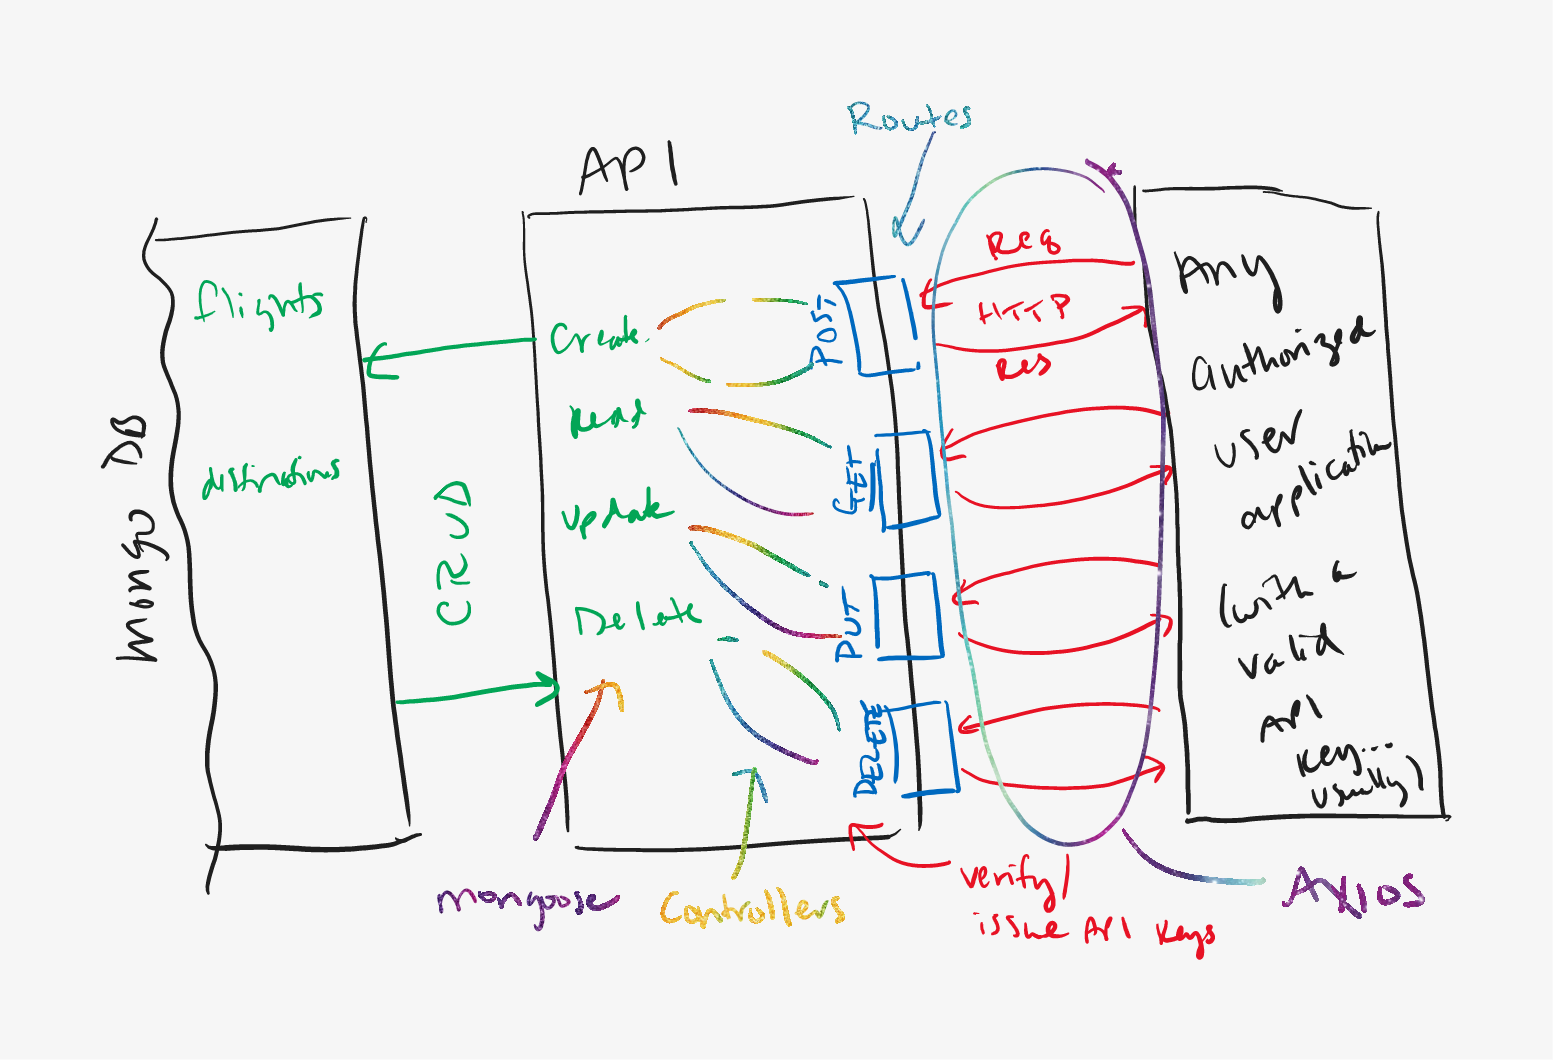 Routes
API
flights
distinations
Mongo DB
CRUD
Create
Read
Update
Delete
POST
GET
PUT
DELETE
Req
HTTP
Res
Any
authorized
user
application
(with a
valid
API
key...
usually)
mongoose
Controllers
verify/
issue API keys
Axios